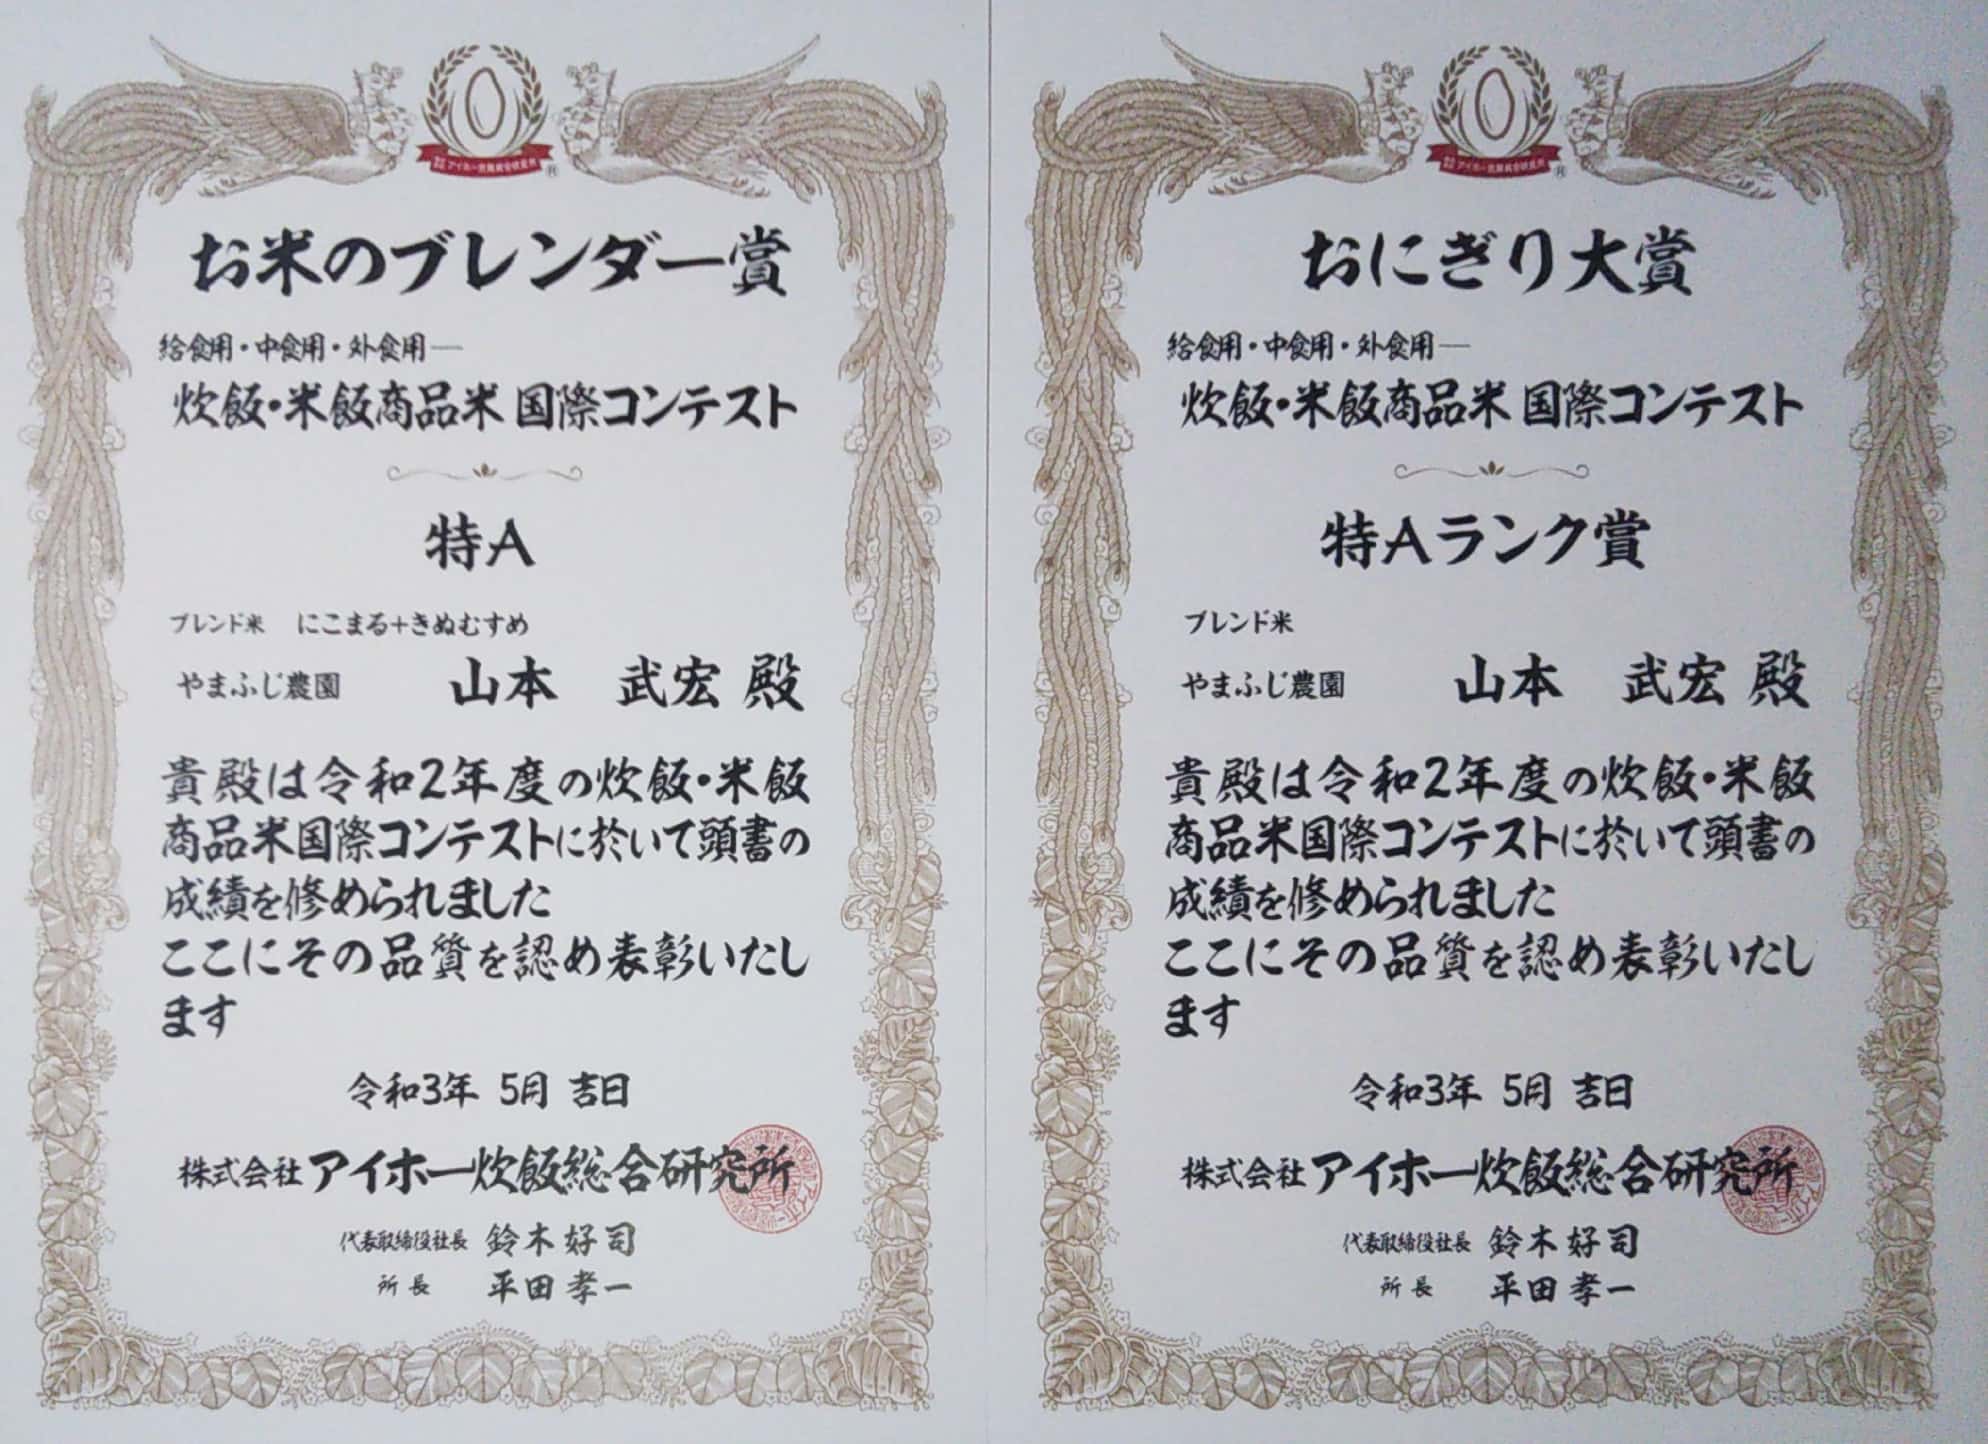 お米のブレンダー賞
給食用・中食用・外食用―
炊飯・米飯商品米 国際コンテスト
特A
ブレンド米 にこまる+きぬむすめ
やまふじ農園 山本 武宏 殿
貴殿は令和2年度の炊飯・米飯
商品米国際コンテストに於いて頭書の
成績を修められました
ここにその品質を認め表彰いたし
ます
令和3年 5月 吉日
株式会社 アイホー炊飯総合研究所
代表取締役社長 鈴木好司
所長 平田孝一
おにぎり大賞
給食用・中食用・外食用―
炊飯・米飯商品米 国際コンテスト
特Aランク賞
ブレンド米
やまふじ農園 山本 武宏 殿
貴殿は令和2年度の炊飯・米飯
商品米国際コンテストに於いて頭書の
成績を修められました
ここにその品質を認め表彰いたし
ます
令和3年 5月 吉日
株式会社 アイホー炊飯総合研究所
代表取締役社長 鈴木好司
所長 平田孝一